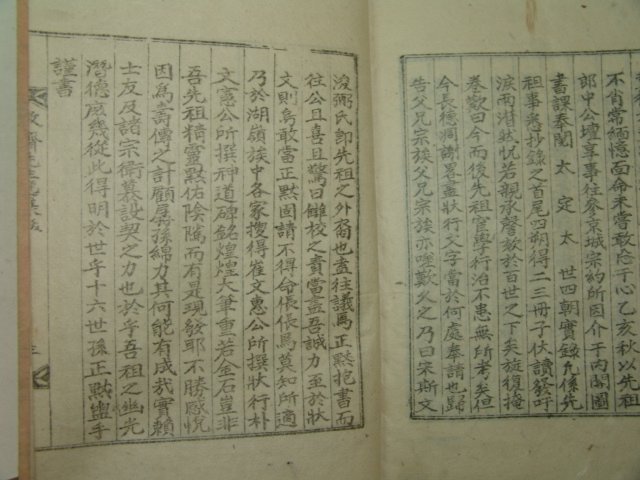 不肖常緬憶面命未嘗敢忘于心乙亥秋以先祖
郎中公壇享事往參京城宗約所因介于內閣圖
書課奉閱太定太世四朝實錄凡係先
祖事悉抄錄之首尾四朔得二三冊子伏讀發吁
淚雨潸然怳若親承謦欬於百世之下矣旋復掩
卷歎曰今而後先祖官學行治不患無所考矣但
令長德洞謝畧盡狀行文字當於何處奉請也歸
告父兄宗族父兄宗族亦唑歎久之乃曰宋斯文
浚弼氏卽先祖之外裔也盍往議焉正默抱書而
往公且喜且驚曰雠校之責當盡吾誠力至於狀
文則烏敢當正默固請不得命倀倀焉莫知所適
乃於湖嶺族中各家搜得崔文惠公所撰狀行朴
文憲公所撰神道碑銘煌煌大筆重若金石豈非
吾先祖精靈默佑陰隲而有是現發耶不勝感悅
因爲壽傳之計顧孱孫綿力其何能有成哉實賴
士友及諸宗衛慕設契之力也於乎吾祖之幽光
潛德庶幾從此得明於世乎十六世孫正默盥手
謹書